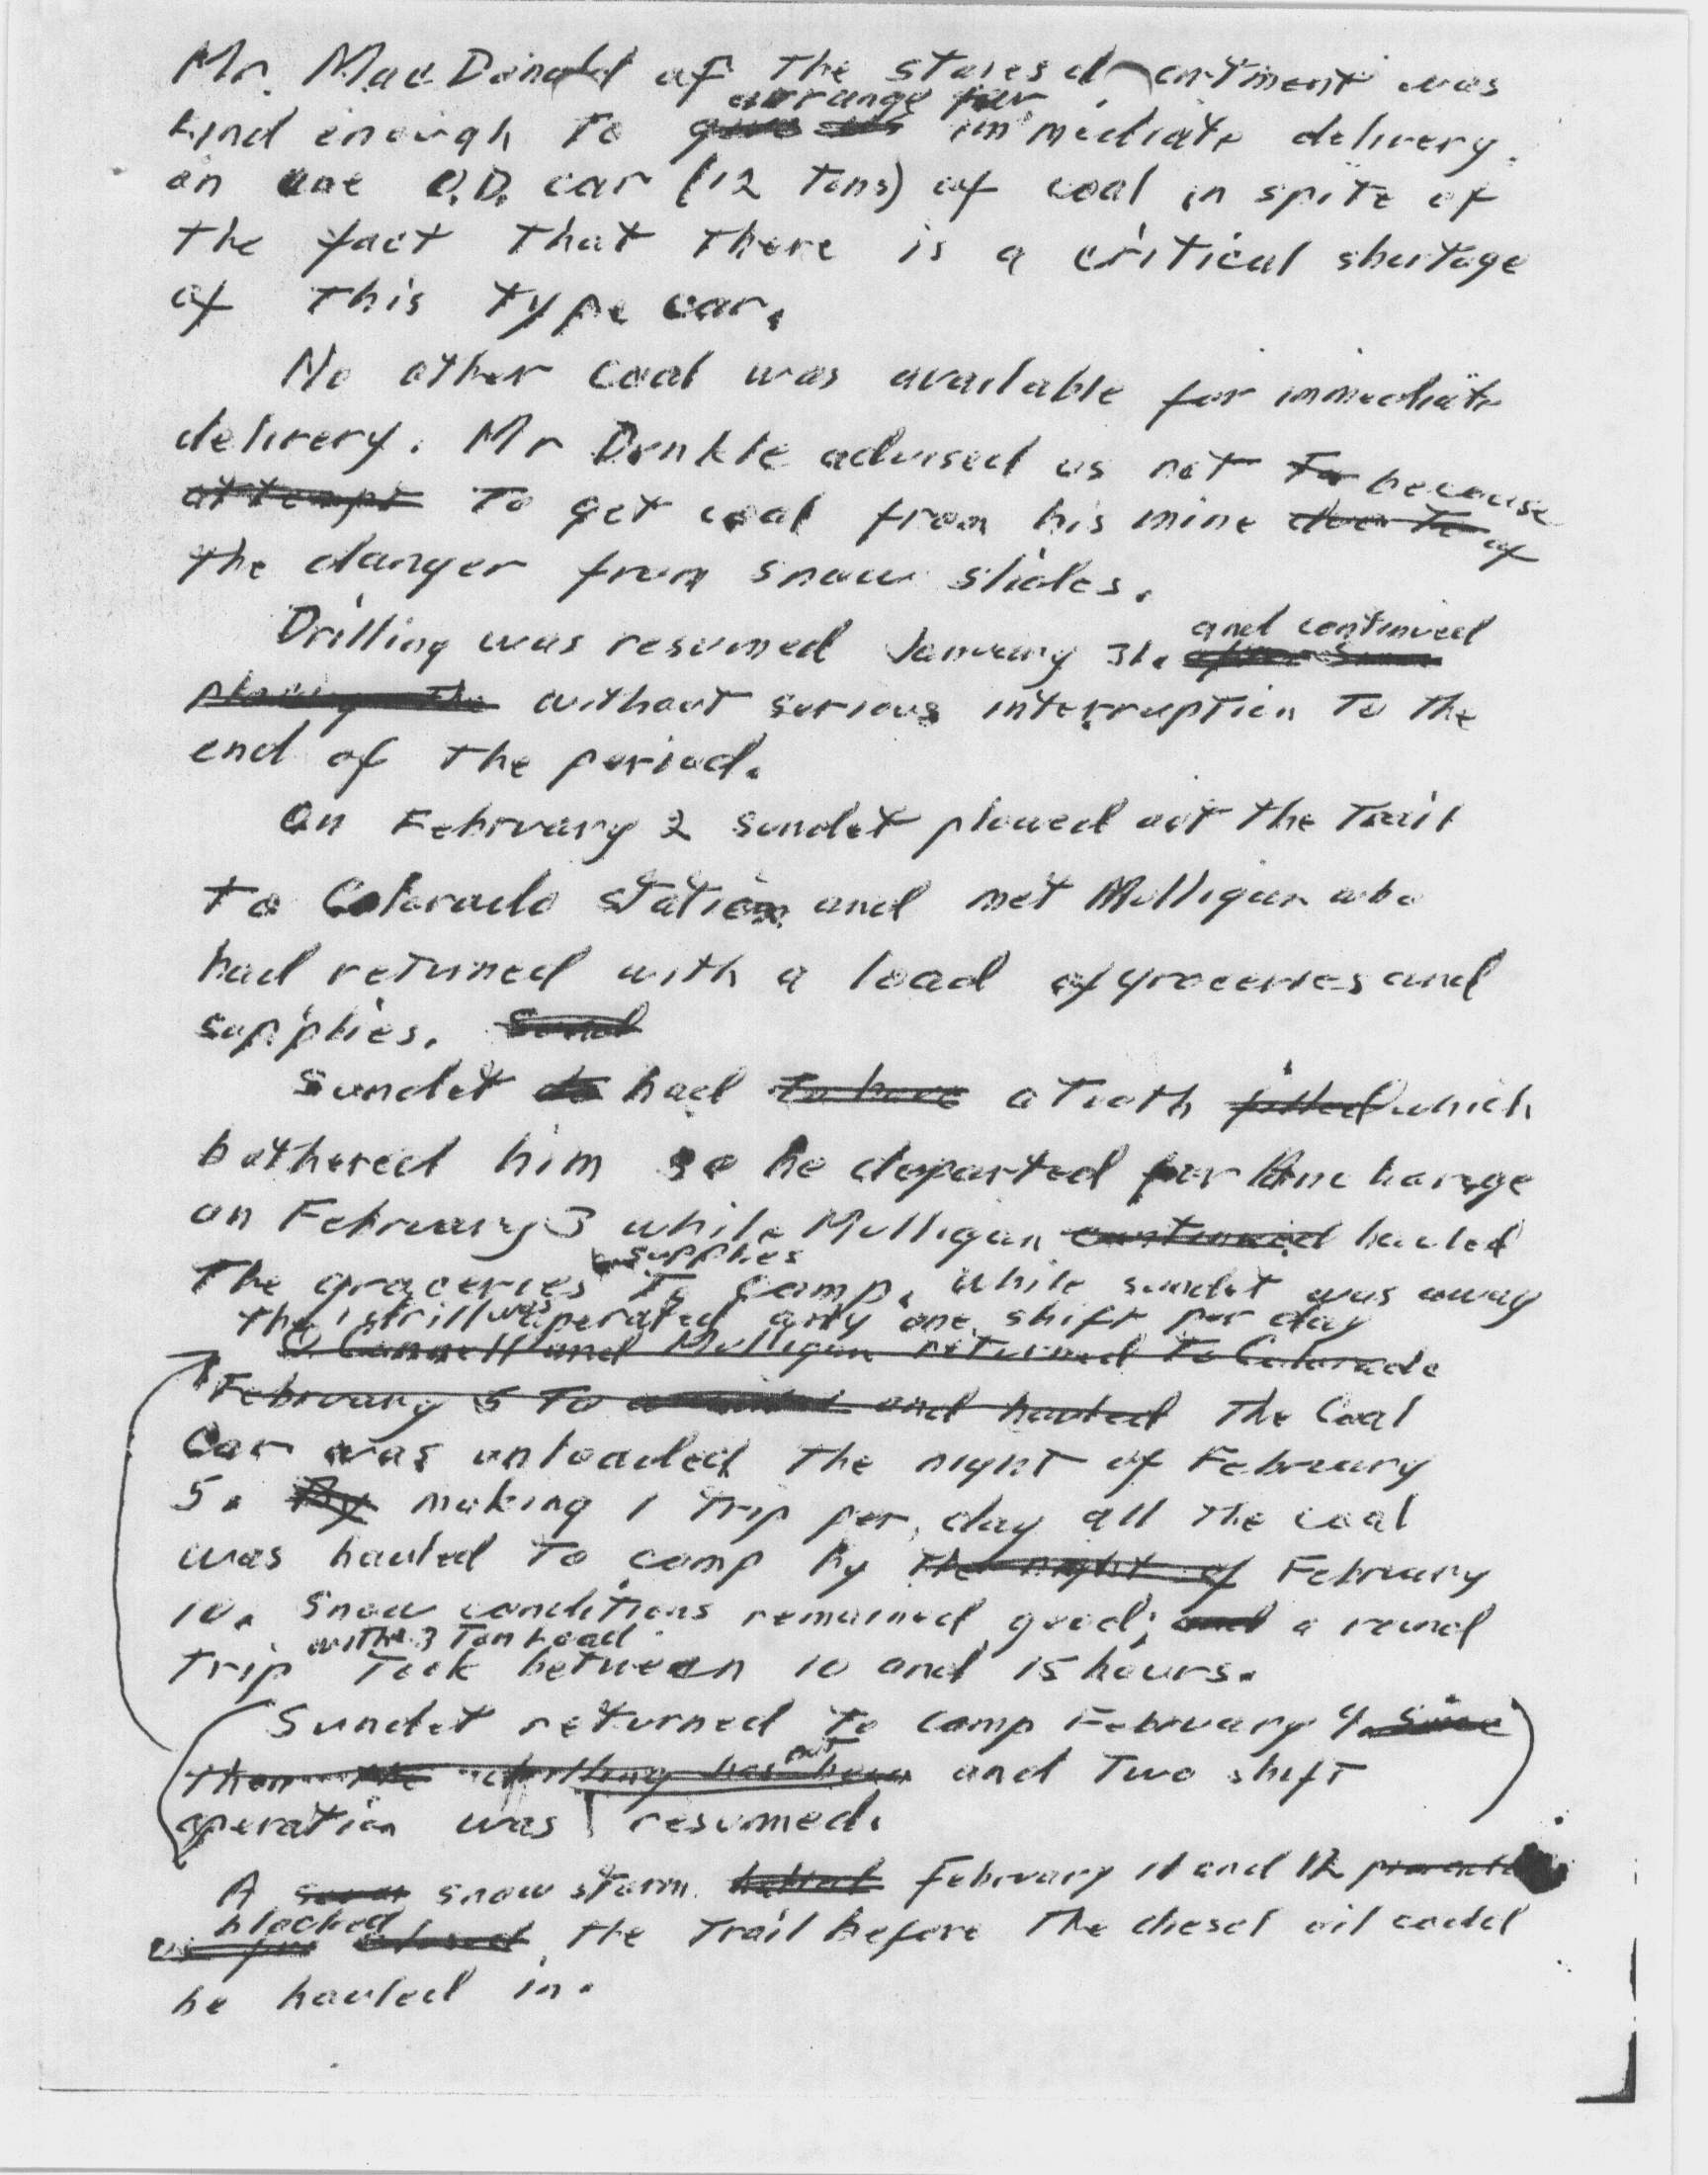 Mr. MacDonald of the stores department was
arrange for
kind enough to give us immediate delivery.
on one O.D. car (12 tons) of coal in spite of
the fact that there is a critical shortage
of this type car.
No other coal was available for immediate
delivery. Mr Dunkle advised us not to because
attempt to get coal from his mine due to of
the danger from snow slides.
and continued
Drilling was resumed January 31.
placing the without serious interruption to the
end of the period.
On February 2 Sundet plowed out the trail
to Colorado station and met Mulligan who
had returned with a load of groceries and
supplies. Sund
Sundet had to have a tooth filled which
bothered him so he departed for Anchorage
on February 3 while Mulligan continued hauled
supplies
the groceries to camp. While Sundet was away
the drill was operated only one shift per day
O'Connell and Mulligan returned to Colorado
February 5 to and hauled The Coal
Car was unloaded the night of February
5. By making 1 trip per day all the coal
was hauled to camp by the night of February
10. Snow conditions remained good; and a round
with 3 Ton Load
trip took between 10 and 15 hours.
Sundet returned to camp February 4. Since
then the drilling has not been and two shift
operation was resumed.
A snow storm February 11 and 12
blocked
closed the trail before the diesel oil could
be hauled in.